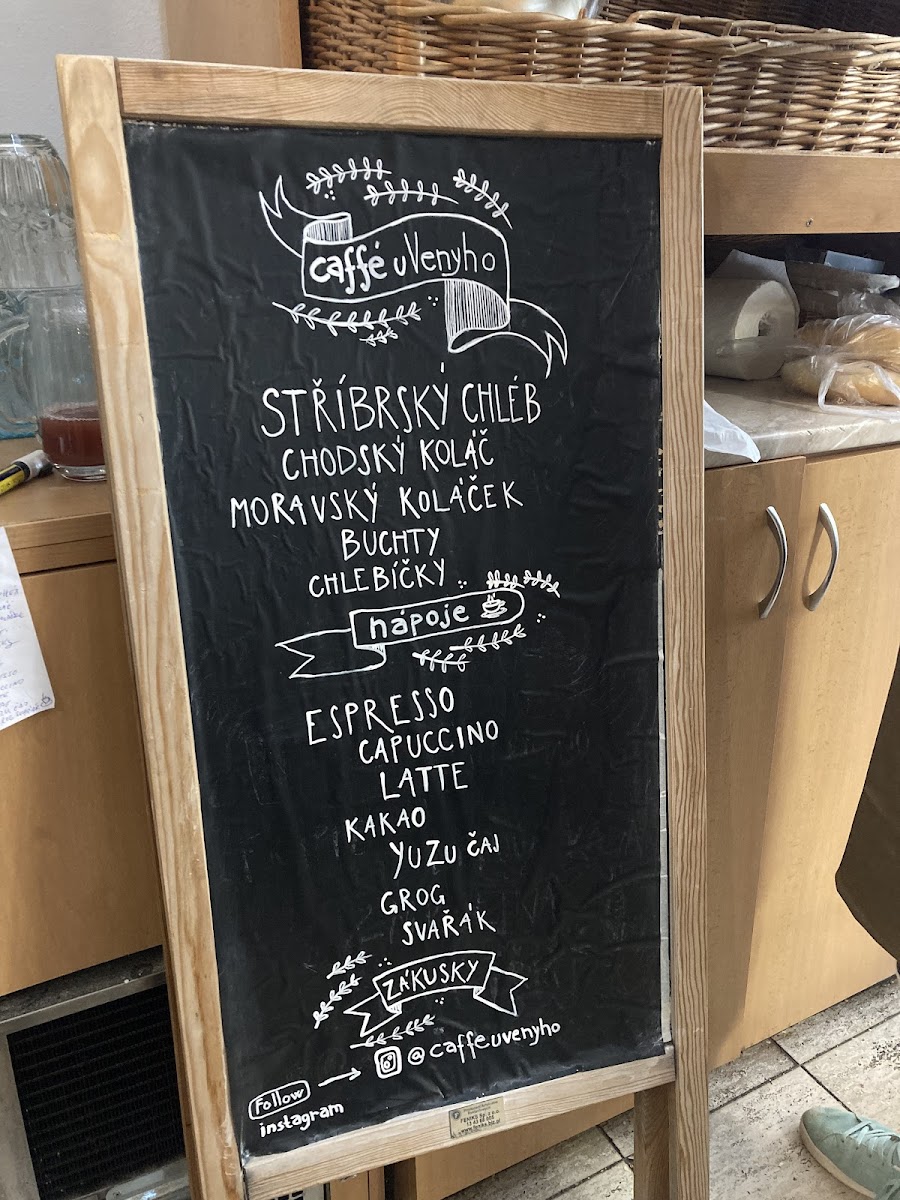 caffé uVenyho
STŘÍBRSKÝ CHLÉB
CHODSKÝ KOLÁČ
MORAVSKÝ KOLÁČEK
BUCHTY
CHLEBÍČKY
nápoje
ESPRESSO
CAPUCCINO
LATTE
KAKAO
YUZU ČAJ
GROG
SVAŘÁK
ZÁKUSKY
@caffeuvenyho
Follow
instagram